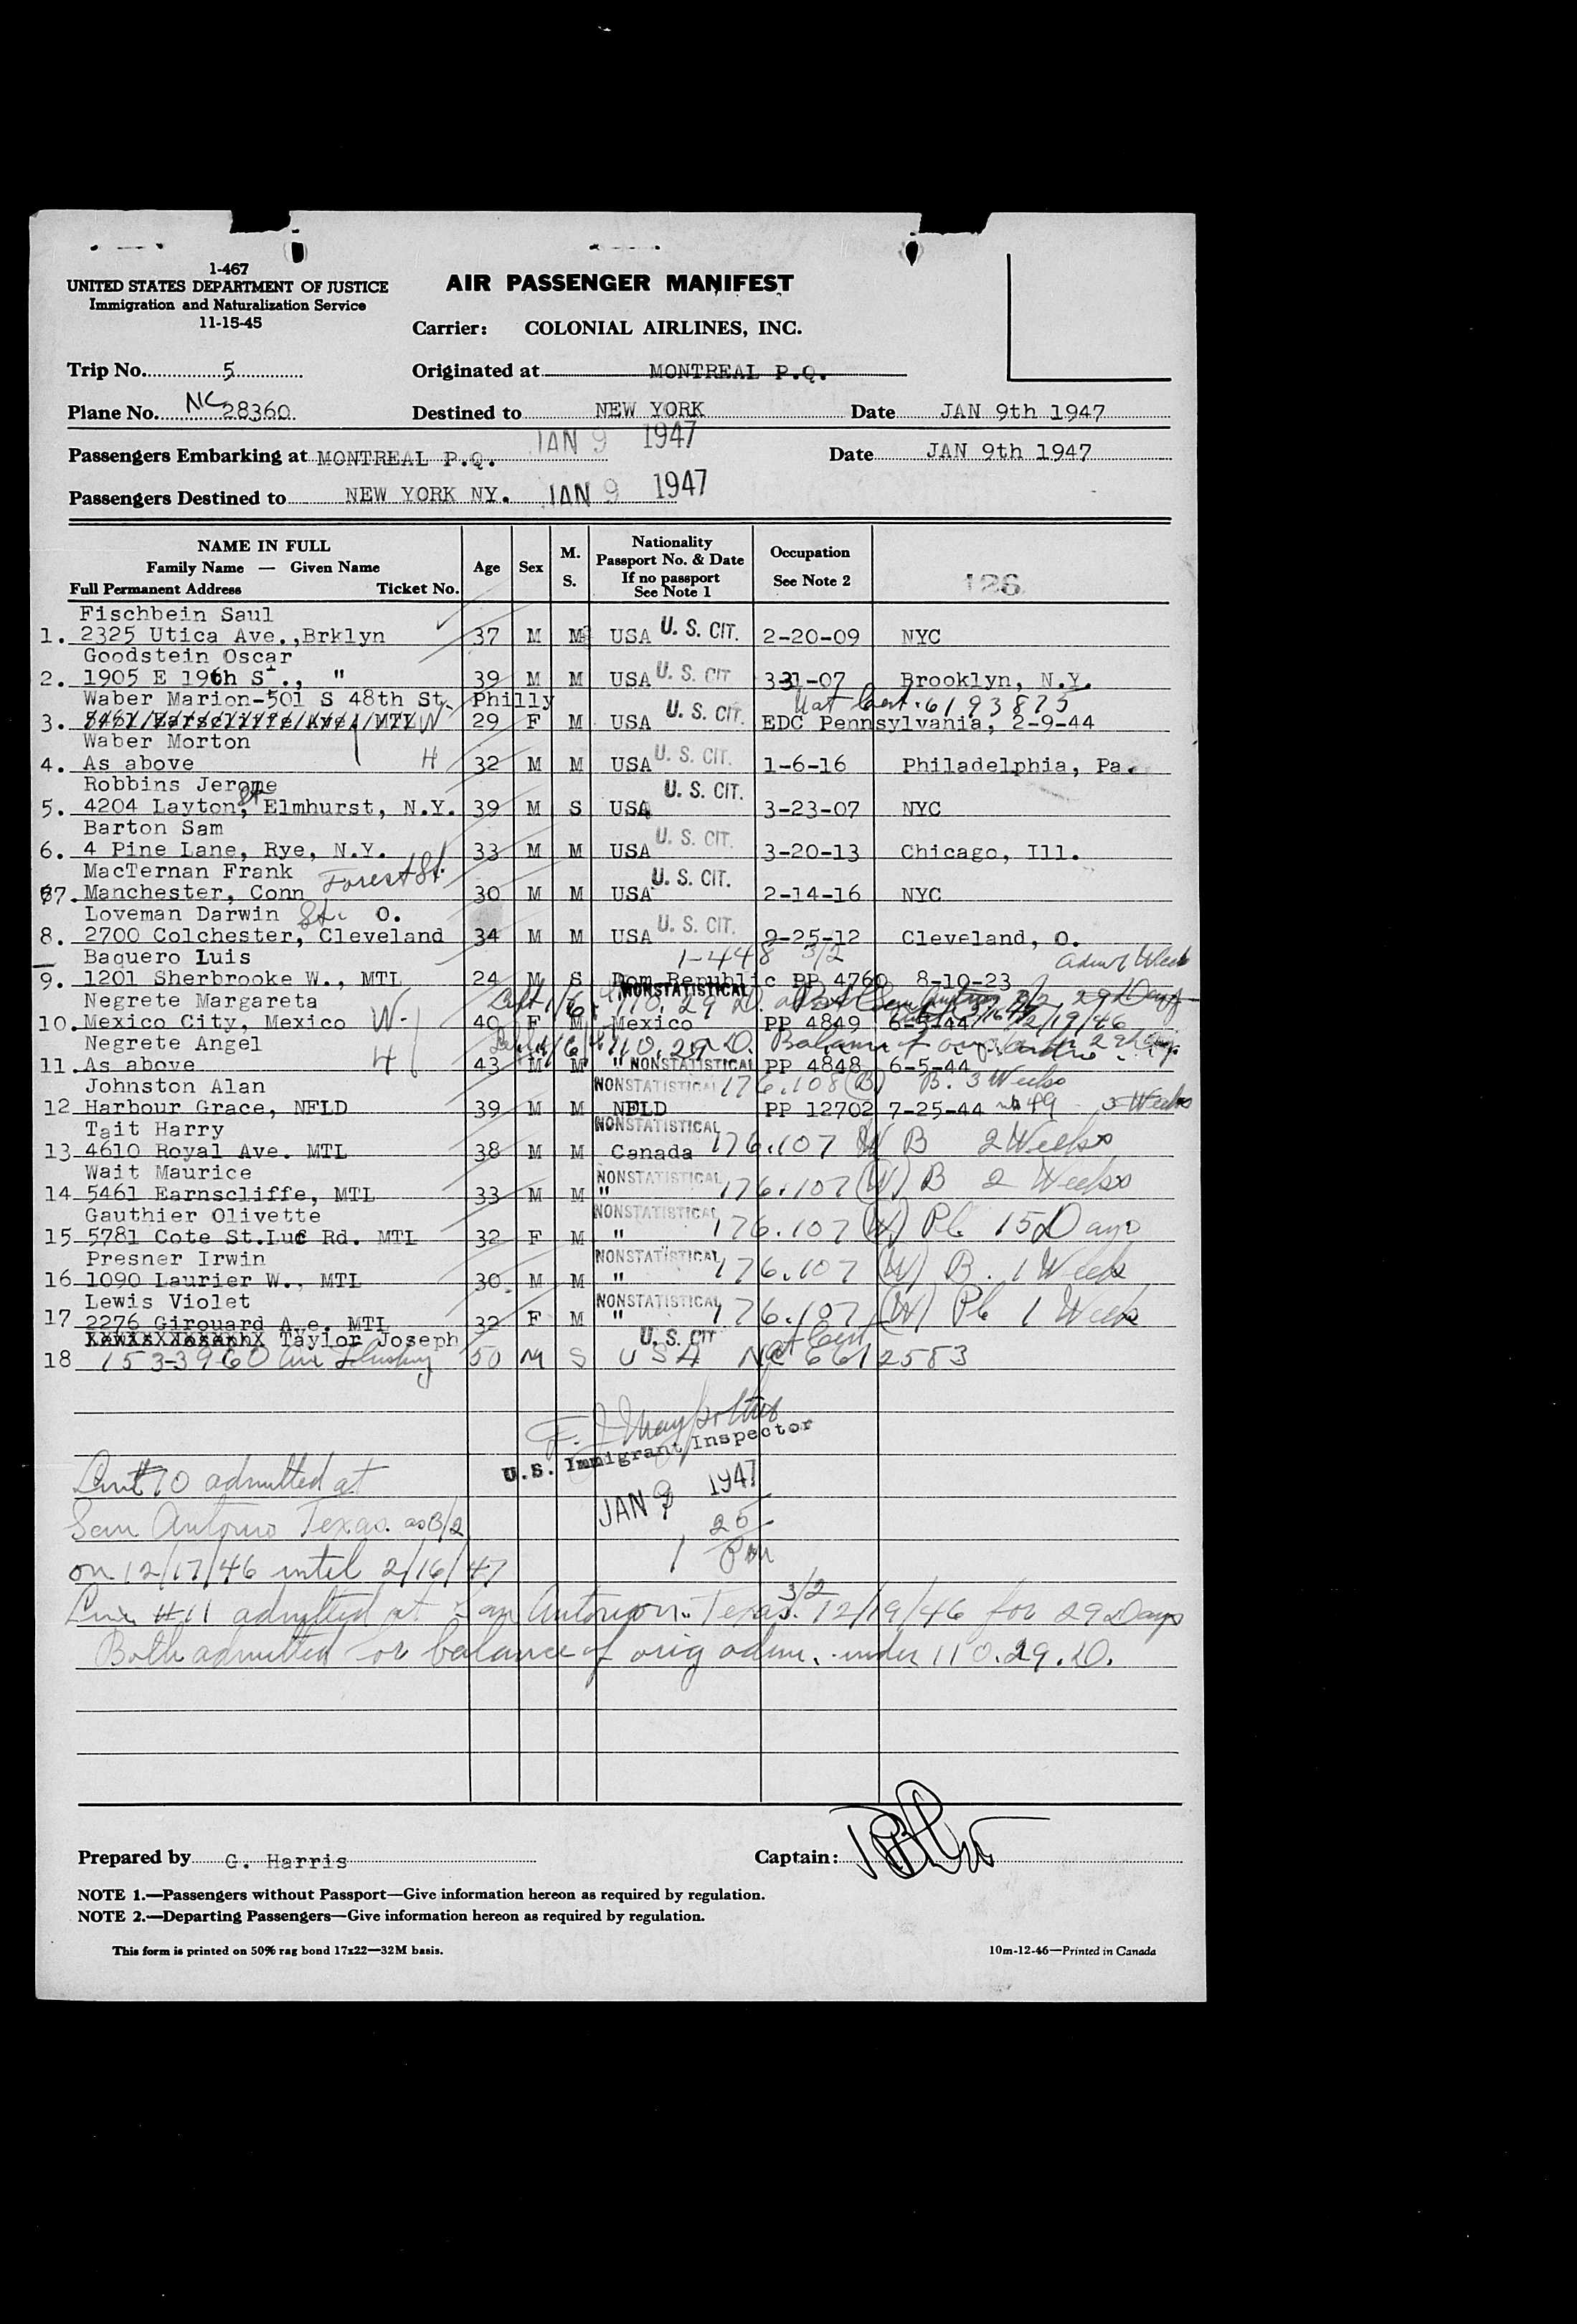 1-467
UNITED STATES DEPARTMENT OF JUSTICE
Immigration and Naturalization Service
11-15-45
AIR PASSENGER MANIFEST
Carrier: COLONIAL AIRLINES, INC.
Trip No. 5 Originated at MONTREAL P.Q.
Plane No. NC 28360 Destined to NEW YORK Date JAN 9th 1947
JAN 9 1947
Passengers Embarking at MONTREAL P.Q. Date JAN 9th 1947
Passengers Destined to NEW YORK NY. JAN 9 1947
NAME IN FULL
Family Name — Given Name
Full Permanent Address Ticket No.
Age Sex M. S.
Nationality
Passport No. & Date
If no passport
See Note 1
Occupation
See Note 2
126
Fischbein Saul
1. 2325 Utica Ave.,Brklyn 37 M M USA U. S. CIT. 2-20-09 NYC
Goodstein Oscar
2. 1905 E 19th St., " 39 M M USA U. S. CIT 331-07 Brooklyn, N.Y.
Waber Marion-501 S 48th St. Philly Nat Cert. 6193875
3. 5461/Earscliffe/Ave/MTL W 29 F M USA U. S. CIT. EDC Pennsylvania, 2-9-44
Waber Morton
4. As above H 32 M M USA U. S. CIT. 1-6-16 Philadelphia, Pa.
Robbins Jerome
5. 4204 Layton, St Elmhurst, N.Y. 39 M S USA U. S. CIT. 3-23-07 NYC
Barton Sam
6. 4 Pine Lane, Rye, N.Y. 33 M M USA U. S. CIT. 3-20-13 Chicago, Ill.
MacTernan Frank
7. Manchester, Conn Forest St. 30 M M USA U. S. CIT. 2-14-16 NYC
Loveman Darwin St. O.
8. 2700 Colchester, Cleveland 34 M M USA U. S. CIT. 9-25-12 Cleveland, O.
Baquero Luis 1-448 3/2
9. 1201 Sherbrooke W., MTL 24 M S Dom Republic PP 4760 8-10-23
Negrete Margareta NONSTATISTICAL 110.29 D. 3/2 29 Days
10. Mexico City, Mexico W. 40 F M Mexico PP 4849 6-5-44 12/19/46
Negrete Angel 110.29 D. Balance of
11. As above H 43 M M " NONSTATISTICAL PP 4848 6-5-44
Johnston Alan NONSTATISTICAL 176.108 (B) B. 3 Weeks
12 Harbour Grace, NFLD 39 M M NFLD PP 12702 7-25-44 49 3 Weeks
Tait Harry NONSTATISTICAL
13 4610 Royal Ave. MTL 38 M M Canada 176.107 W B 2 Weeks
Wait Maurice NONSTATISTICAL
14 5461 Earnscliffe, MTL 33 M M " 176.107 (W) B 2 Weeks
Gauthier Olivette NONSTATISTICAL
15 5781 Cote St.Luc Rd. MTL 32 F M " 176.107 (W) Pl 15 Days
Presner Irwin NONSTATISTICAL
16 1090 Laurier W., MTL 30 M M " 176.107 (W) B. 1 Week
Lewis Violet NONSTATISTICAL
17 2276 Girouard Ave. MTL 32 F M " 176.107 (W) Pl 1 Week
Lewis Joseph Taylor Joseph U. S. CIT
18 153-39 60 Ave Flushing 50 M S USA Nat Cert 6612583
U.S. Immigrant Inspector
JAN 9 1947
1 20 PM
Line # 10 admitted at
San Antonio Texas. as 3/2
on 12/17/46 until 2/16/47
Line #11 admitted at San Antonio. Texas. 3/2 12/19/46 for 29 Days
Both admitted for balance of orig adm. under 110.29.D.
Prepared by G. Harris Captain:
NOTE 1.—Passengers without Passport—Give information hereon as required by regulation.
NOTE 2.—Departing Passengers—Give information hereon as required by regulation.
This form is printed on 50% rag bond 17x22—32M basis. 10m-12-46—Printed in Canada